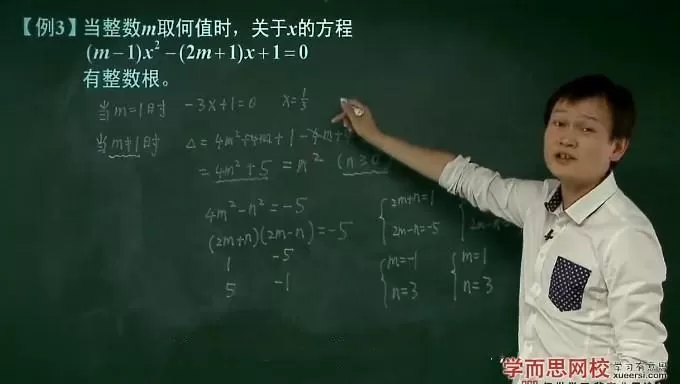 【例3】当整数m取何值时，关于x的方程
(m−1)x²−(2m+1)x+1=0
有整数根。
当m=1时 -3x+1=0 x=1/3
当m≠1时 Δ=4m²+4m+1-4m+
=4m²+5=n² (n≥0
4m²-n²=-5
(2m+n)(2m-n)=-5
1 -5
5 -1
2m+n=1
2m-n=-5
m=-1
n=3
m=1
n=3
学而思网校
学习有意思
xueersi.com